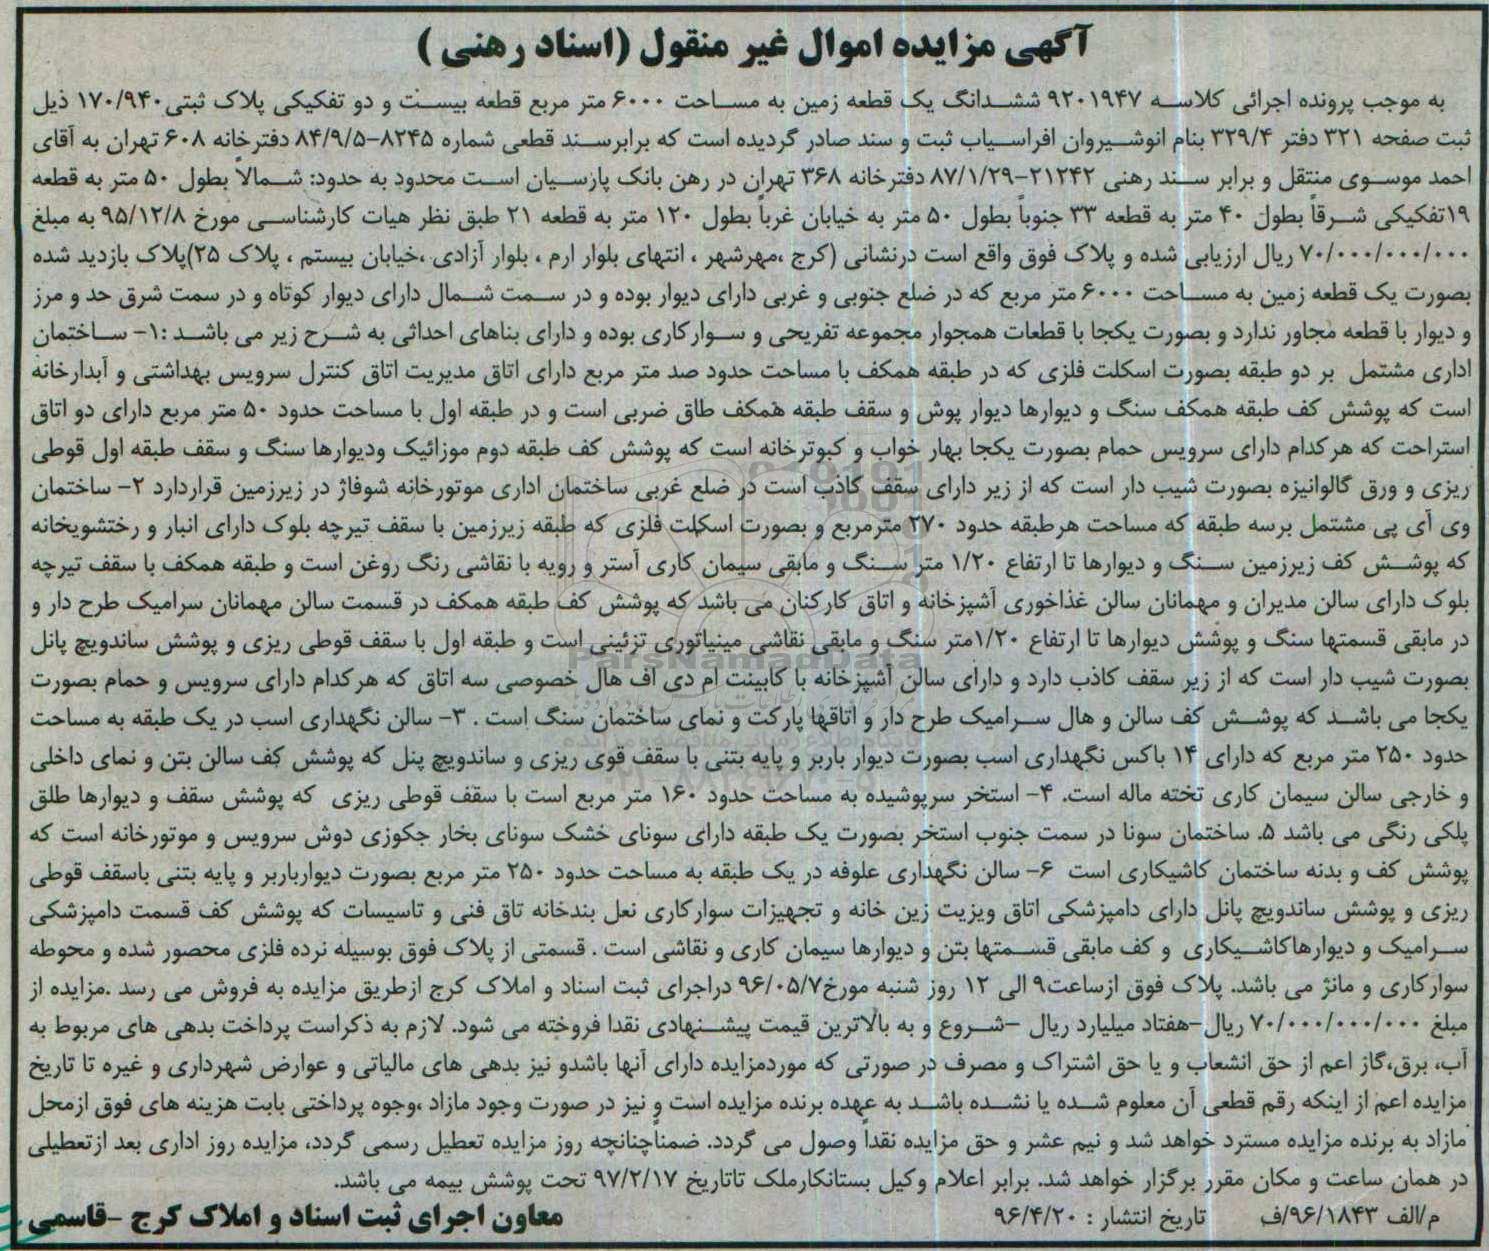 آگهی مزایده اموال غیر منقول (اسناد رهنی)
به موجب پرونده اجرائی کلاسه ۹۲۰۱۹۴۷ ششدانگ یک قطعه زمین به مساحت ۶۰۰۰ متر مربع قطعه بیست و دو تفکیکی پلاک ثبتی ۱۷۰/۹۴۰ ذیل
ثبت صفحه ۳۲۱ دفتر ۳۲۹/۴ بنام انوشیروان افراسیاب ثبت و سند صادر گردیده است که برابرسند قطعی شماره ۸۲۴۵-۸۴/۹/۵ دفترخانه ۶۰۸ تهران به آقای
احمد موسوی منتقل و برابر سند رهنی ۲۱۲۴۲-۸۷/۱/۲۹ دفترخانه ۳۶۸ تهران در رهن بانک پارسیان است محدود به حدود: شمالاً بطول ۵۰ متر به قطعه
۱۹تفکیکی شرقاً بطول ۴۰ متر به قطعه ۳۳ جنوباً بطول ۵۰ متر به خیابان غرباً بطول ۱۲۰ متر به قطعه ۲۱ طبق نظر هیات کارشناسی مورخ ۹۵/۱۲/۸ به مبلغ
۷۰/۰۰۰/۰۰۰/۰۰۰ ریال ارزیابی شده و پلاک فوق واقع است درنشانی (کرج ،مهرشهر ، انتهای بلوار ارم ، بلوار آزادی ،خیابان بیستم ، پلاک ۲۵)پلاک بازدید شده
بصورت یک قطعه زمین به مساحت ۶۰۰۰ متر مربع که در ضلع جنوبی و غربی دارای دیوار بوده و در سمت شمال دارای دیوار کوتاه و در سمت شرق حد و مرز
و دیوار با قطعه مجاور ندارد و بصورت یکجا با قطعات همجوار مجموعه تفریحی و سوارکاری بوده و دارای بناهای احداثی به شرح زیر می باشد :۱- ساختمان
اداری مشتمل بر دو طبقه بصورت اسکلت فلزی که در طبقه همکف با مساحت حدود صد متر مربع دارای اتاق مدیریت اتاق کنترل سرویس بهداشتی و آبدارخانه
است که پوشش کف طبقه همکف سنگ و دیوارها دیوار پوش و سقف طبقه همکف طاق ضربی است و در طبقه اول با مساحت حدود ۵۰ متر مربع دارای دو اتاق
استراحت که هرکدام دارای سرویس حمام بصورت یکجا بهار خواب و کبوترخانه است که پوشش کف طبقه دوم موزائیک ودیوارها سنگ و سقف طبقه اول قوطی
ریزی و ورق گالوانیزه بصورت شیب دار است که از زیر دارای سقف کاذب است در ضلع غربی ساختمان اداری موتورخانه شوفاژ در زیرزمین قراردارد ۲- ساختمان
وی آی پی مشتمل برسه طبقه که مساحت هرطبقه حدود ۲۷۰ مترمربع و بصورت اسکلت فلزی که طبقه زیرزمین با سقف تیرچه بلوک دارای انبار و رختشویخانه
که پوشش کف زیرزمین سنگ و دیوارها تا ارتفاع ۱/۲۰ متر سنگ و مابقی سیمان کاری آستر و رویه با نقاشی رنگ روغن است و طبقه همکف با سقف تیرچه
بلوک دارای سالن مدیران و مهمانان سالن غذاخوری آشپزخانه و اتاق کارکنان می باشد که پوشش کف طبقه همکف در قسمت سالن مهمانان سرامیک طرح دار و
در مابقی قسمتها سنگ و پوشش دیوارها تا ارتفاع ۱/۲۰متر سنگ و مابقی نقاشی مینیاتوری تزئینی است و طبقه اول با سقف قوطی ریزی و پوشش ساندویچ پانل
بصورت شیب دار است که از زیر سقف کاذب دارد و دارای سالن آشپزخانه با کابینت ام دی اف هال خصوصی سه اتاق که هرکدام دارای سرویس و حمام بصورت
یکجا می باشد که پوشش کف سالن و هال سرامیک طرح دار و اتاقها پارکت و نمای ساختمان سنگ است . ۳- سالن نگهداری اسب در یک طبقه به مساحت
حدود ۲۵۰ متر مربع که دارای ۱۴ باکس نگهداری اسب بصورت دیوار باربر و پایه بتنی با سقف قوی ریزی و ساندویچ پنل که پوشش کف سالن بتن و نمای داخلی
و خارجی سالن سیمان کاری تخته ماله است. ۴- استخر سرپوشیده به مساحت حدود ۱۶۰ متر مربع است با سقف قوطی ریزی که پوشش سقف و دیوارها طلق
پلکی رنگی می باشد ۵. ساختمان سونا در سمت جنوب استخر بصورت یک طبقه دارای سونای خشک سونای بخار جکوزی دوش سرویس و موتورخانه است که
پوشش کف و بدنه ساختمان کاشیکاری است ۶- سالن نگهداری علوفه در یک طبقه به مساحت حدود ۲۵۰ متر مربع بصورت دیوارباربر و پایه بتنی باسقف قوطی
ریزی و پوشش ساندویچ پانل دارای دامپزشکی اتاق ویزیت زین خانه و تجهیزات سوارکاری نعل بندخانه تاق فنی و تاسیسات که پوشش کف قسمت دامپزشکی
سرامیک و دیوارهاکاشیکاری و کف مابقی قسمتها بتن و دیوارها سیمان کاری و نقاشی است . قسمتی از پلاک فوق بوسیله نرده فلزی محصور شده و محوطه
سوارکاری و مانژ می باشد. پلاک فوق ازساعت۹ الی ۱۲ روز شنبه مورخ۹۶/۰۵/۷ دراجرای ثبت اسناد و املاک کرج ازطریق مزایده به فروش می رسد .مزایده از
مبلغ ۷۰/۰۰۰/۰۰۰/۰۰۰ ریال-هفتاد میلیارد ریال -شروع و به بالاترین قیمت پیشنهادی نقدا فروخته می شود. لازم به ذکراست پرداخت بدهی های مربوط به
آب، برق،گاز اعم از حق انشعاب و یا حق اشتراک و مصرف در صورتی که موردمزایده دارای آنها باشدو نیز بدهی های مالیاتی و عوارض شهرداری و غیره تا تاریخ
مزایده اعم از اینکه رقم قطعی آن معلوم شده یا نشده باشد به عهده برنده مزایده است و نیز در صورت وجود مازاد ،وجوه پرداختی بابت هزینه های فوق ازمحل
مازاد به برنده مزایده مسترد خواهد شد و نیم عشر و حق مزایده نقداً وصول می گردد. ضمناًچنانچه روز مزایده تعطیل رسمی گردد، مزایده روز اداری بعد ازتعطیلی
در همان ساعت و مکان مقرر برگزار خواهد شد. برابر اعلام وکیل بستانکارملک تاتاریخ ۹۷/۲/۱۷ تحت پوشش بیمه می باشد.
م/الف ۹۶/۱۸۴۳/ف تاریخ انتشار : ۹۶/۴/۲۰ معاون اجرای ثبت اسناد و املاک کرج -قاسمی
ParsNamadData